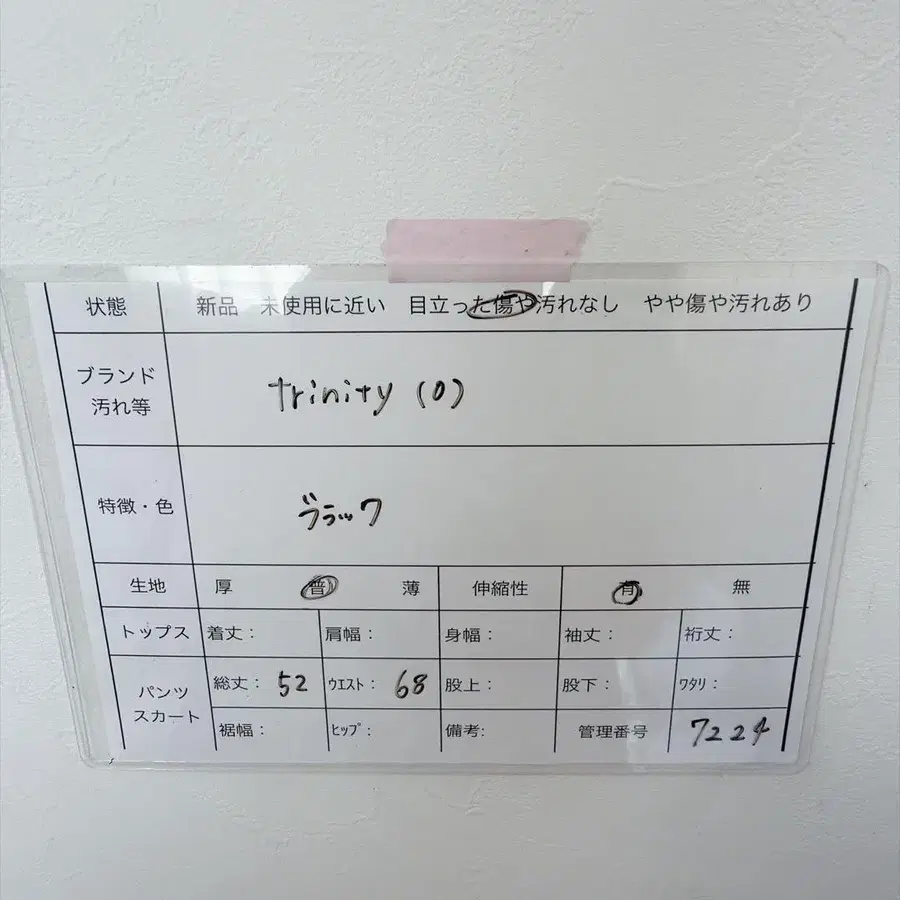 状態 新品 未使用に近い 目立った傷や汚れなし やや傷や汚れあり
ブランド
汚れ等
trinity (0)
特徴・色 ブラック
生地 厚 普 薄 伸縮性 有 無
トップス 着丈： 肩幅： 身幅： 袖丈： 裄丈：
パンツ
スカート
総丈： 52 ウエスト： 68 股上： 股下： ワタリ：
裾幅： ヒップ： 備考: 管理番号 7224